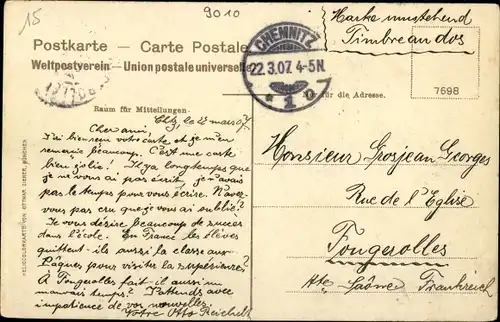 15
9010
Postkarte — Carte Postale
Weltpostverein — Union postale universelle
CHEMNITZ
22.3.07. 4-5N.
* 1
Marke umstehend
Timbre au dos
7698
Raum für Mitteilungen.
Nur für die Adresse.
le 22 mars 07.
Cher ami,
J'ai bien reçu votre carte et je m'en
remercie beaucoup. C'est une carte
bien jolie! Il y a longtemps que
je ne vous ai pas écrit, je n'avais
pas le temps pour vous écrire. N'avez-
vous pas cru que je vous ai oublié?
Je vous désire beaucoup de succès
dans l'école. En France les élèves
quittent-ils aussi la classe aux
Pâques pour visiter la supérieure?
A Fougerolles fait-il aussi un
mauvais temps? J'attends avec
impatience de vos nouvelles.
Votre Otto Reichelt
Monsieur Grosjean Georges
Rue de l'Eglise
Fougerolles
Hte Saône Frankreich